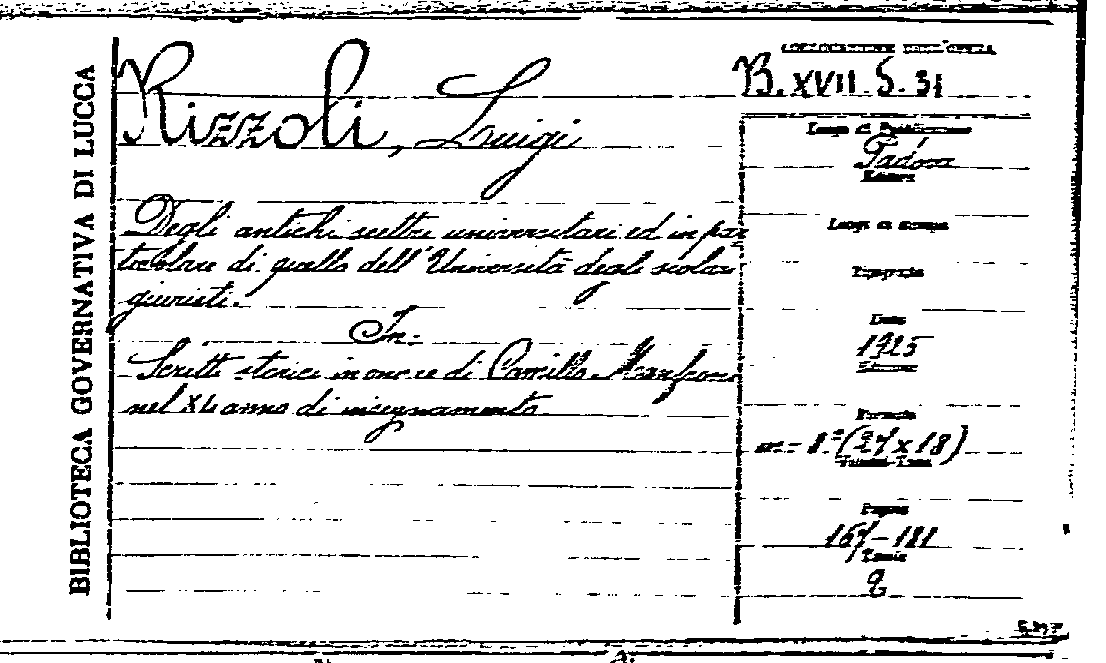 BIBLIOTECA GOVERNATIVA DI LUCCA
Rizzoli, Luigi
Degli antichi scettri universitari ed in par
ticolare di quello dell'Università degli scolari
giuristi.
In:
Scritti storici in onore di Camillo Manfroni
nel XL anno di insegnamento.
B. XVII. 5. 31
Luogo di Pubblicazione
Padova
Editore
Luogo di stampa
Tipografia
Data
1925
Edizione
Formato
8° (27 x 18)
Pagine
167-181
Tavole